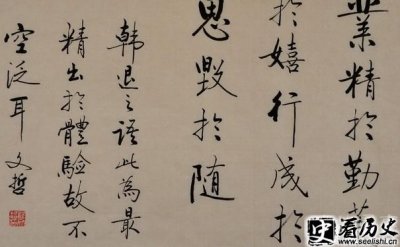 業精於勤荒
於嬉行成於
思毀於随
韓退之語此為最
精出於體驗故不
空泛耳 文哲
看历史
www.seelishi.cn